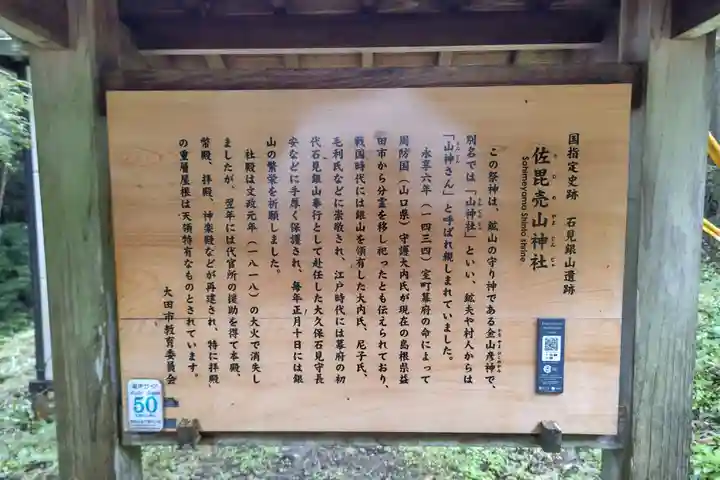 国指定史跡　石見銀山遺跡
佐毘売山神社
さひめやまじんじゃ
Sahimeyama Shinto shrine
この祭神は、鉱山の守り神である金山彦神で、
別名では「山神社」といい、鉱夫や村人からは
「山神さん」と呼ばれ親しまれていました。
永享六年（一四三四）室町幕府の命によって
周防国（山口県）守護大内氏が現在の島根県益
田市から分霊を移し祀ったとも伝えられており、
戦国時代には銀山を領有した大内氏、尼子氏、
毛利氏などに崇敬され、江戸時代には幕府の初
代石見銀山奉行として赴任した大久保石見守長
安などに手厚く保護され、毎年正月十日には銀
山の繁栄を祈願しました。
社殿は文政元年（一八一八）の大火で消失し
ましたが、翌年には代官所の援助を得て本殿、
幣殿、拝殿、神楽殿などが再建され、特に拝殿
の重層屋根は天領特有なものとされています。
大田市教育委員会
音声ガイド
50